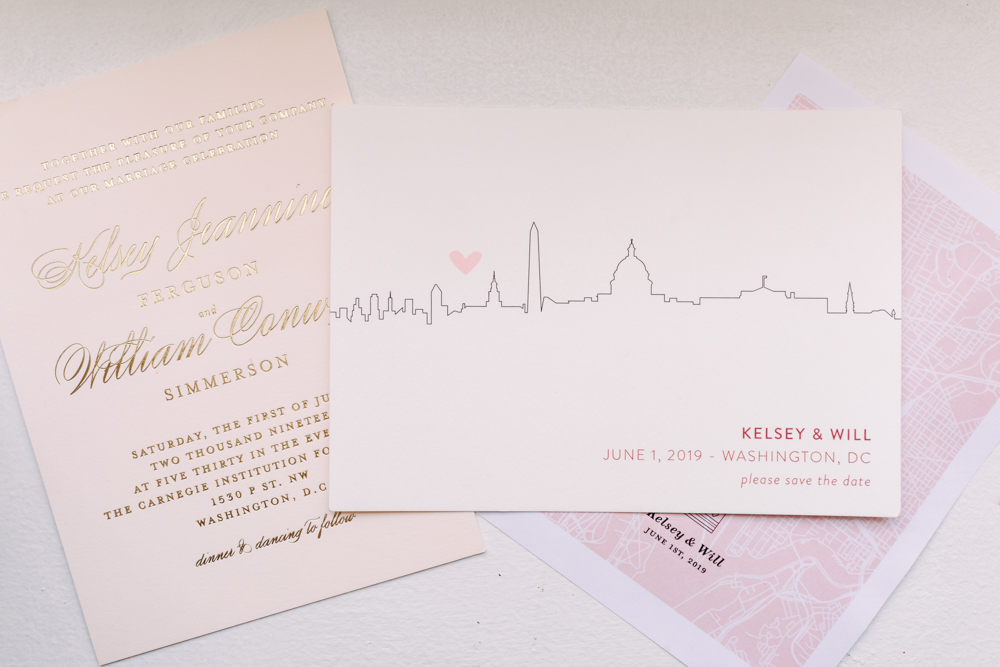 TOGETHER WITH OUR FAMILIES
REQUEST THE PLEASURE OF YOUR COMPANY
AT OUR MARRIAGE CELEBRATION
Kelsey Jeannin
FERGUSON
and
William Conw
SIMMERSON
SATURDAY, THE FIRST OF JU
TWO THOUSAND NINETEE
AT FIVE THIRTY IN THE EVE
THE CARNEGIE INSTITUTION FO
1530 P ST. NW
WASHINGTON, D.C
dinner & dancing to follow
KELSEY & WILL
JUNE 1, 2019 - WASHINGTON, DC
please save the date
Kelsey & Will
JUNE 1ST, 2019